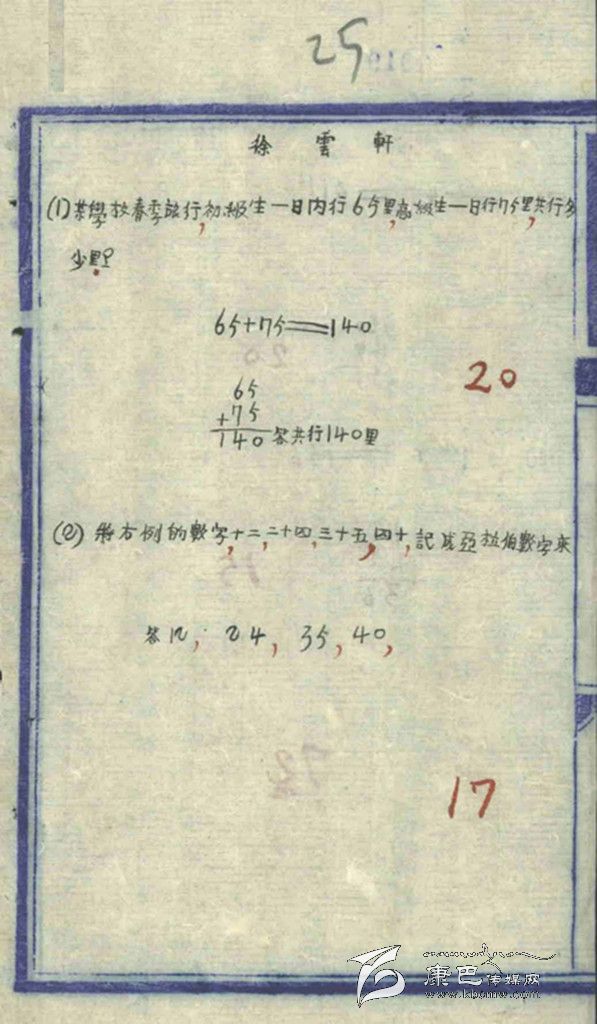 25
徐雲軒
(1)某學校春季旅行,初級生一日內行65里,高級生一日行75里,共行多
少里?
65+75=140
20
65
+75
140 答共行140里
(2) 將右例的數字,十二,二十四,三十五,四十,記成亞拉伯數字來
答12, 24, 35, 40,
17
康巴传媒网
www.kbcmw.com